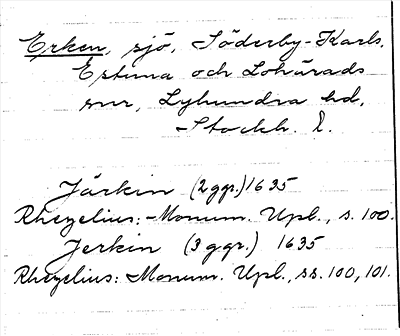 Erken, sjö, Söderby-Karls,
Estuna och Lohärads
snr, Lyhundra hd,
Stockh. l.
Järkin (2 ggr.) 1635
Rhezelius: Monum. Upl., s. 100.
Jerkin (3 ggr.) 1635
Rhezelius: Monum. Upl., ss. 100, 101.